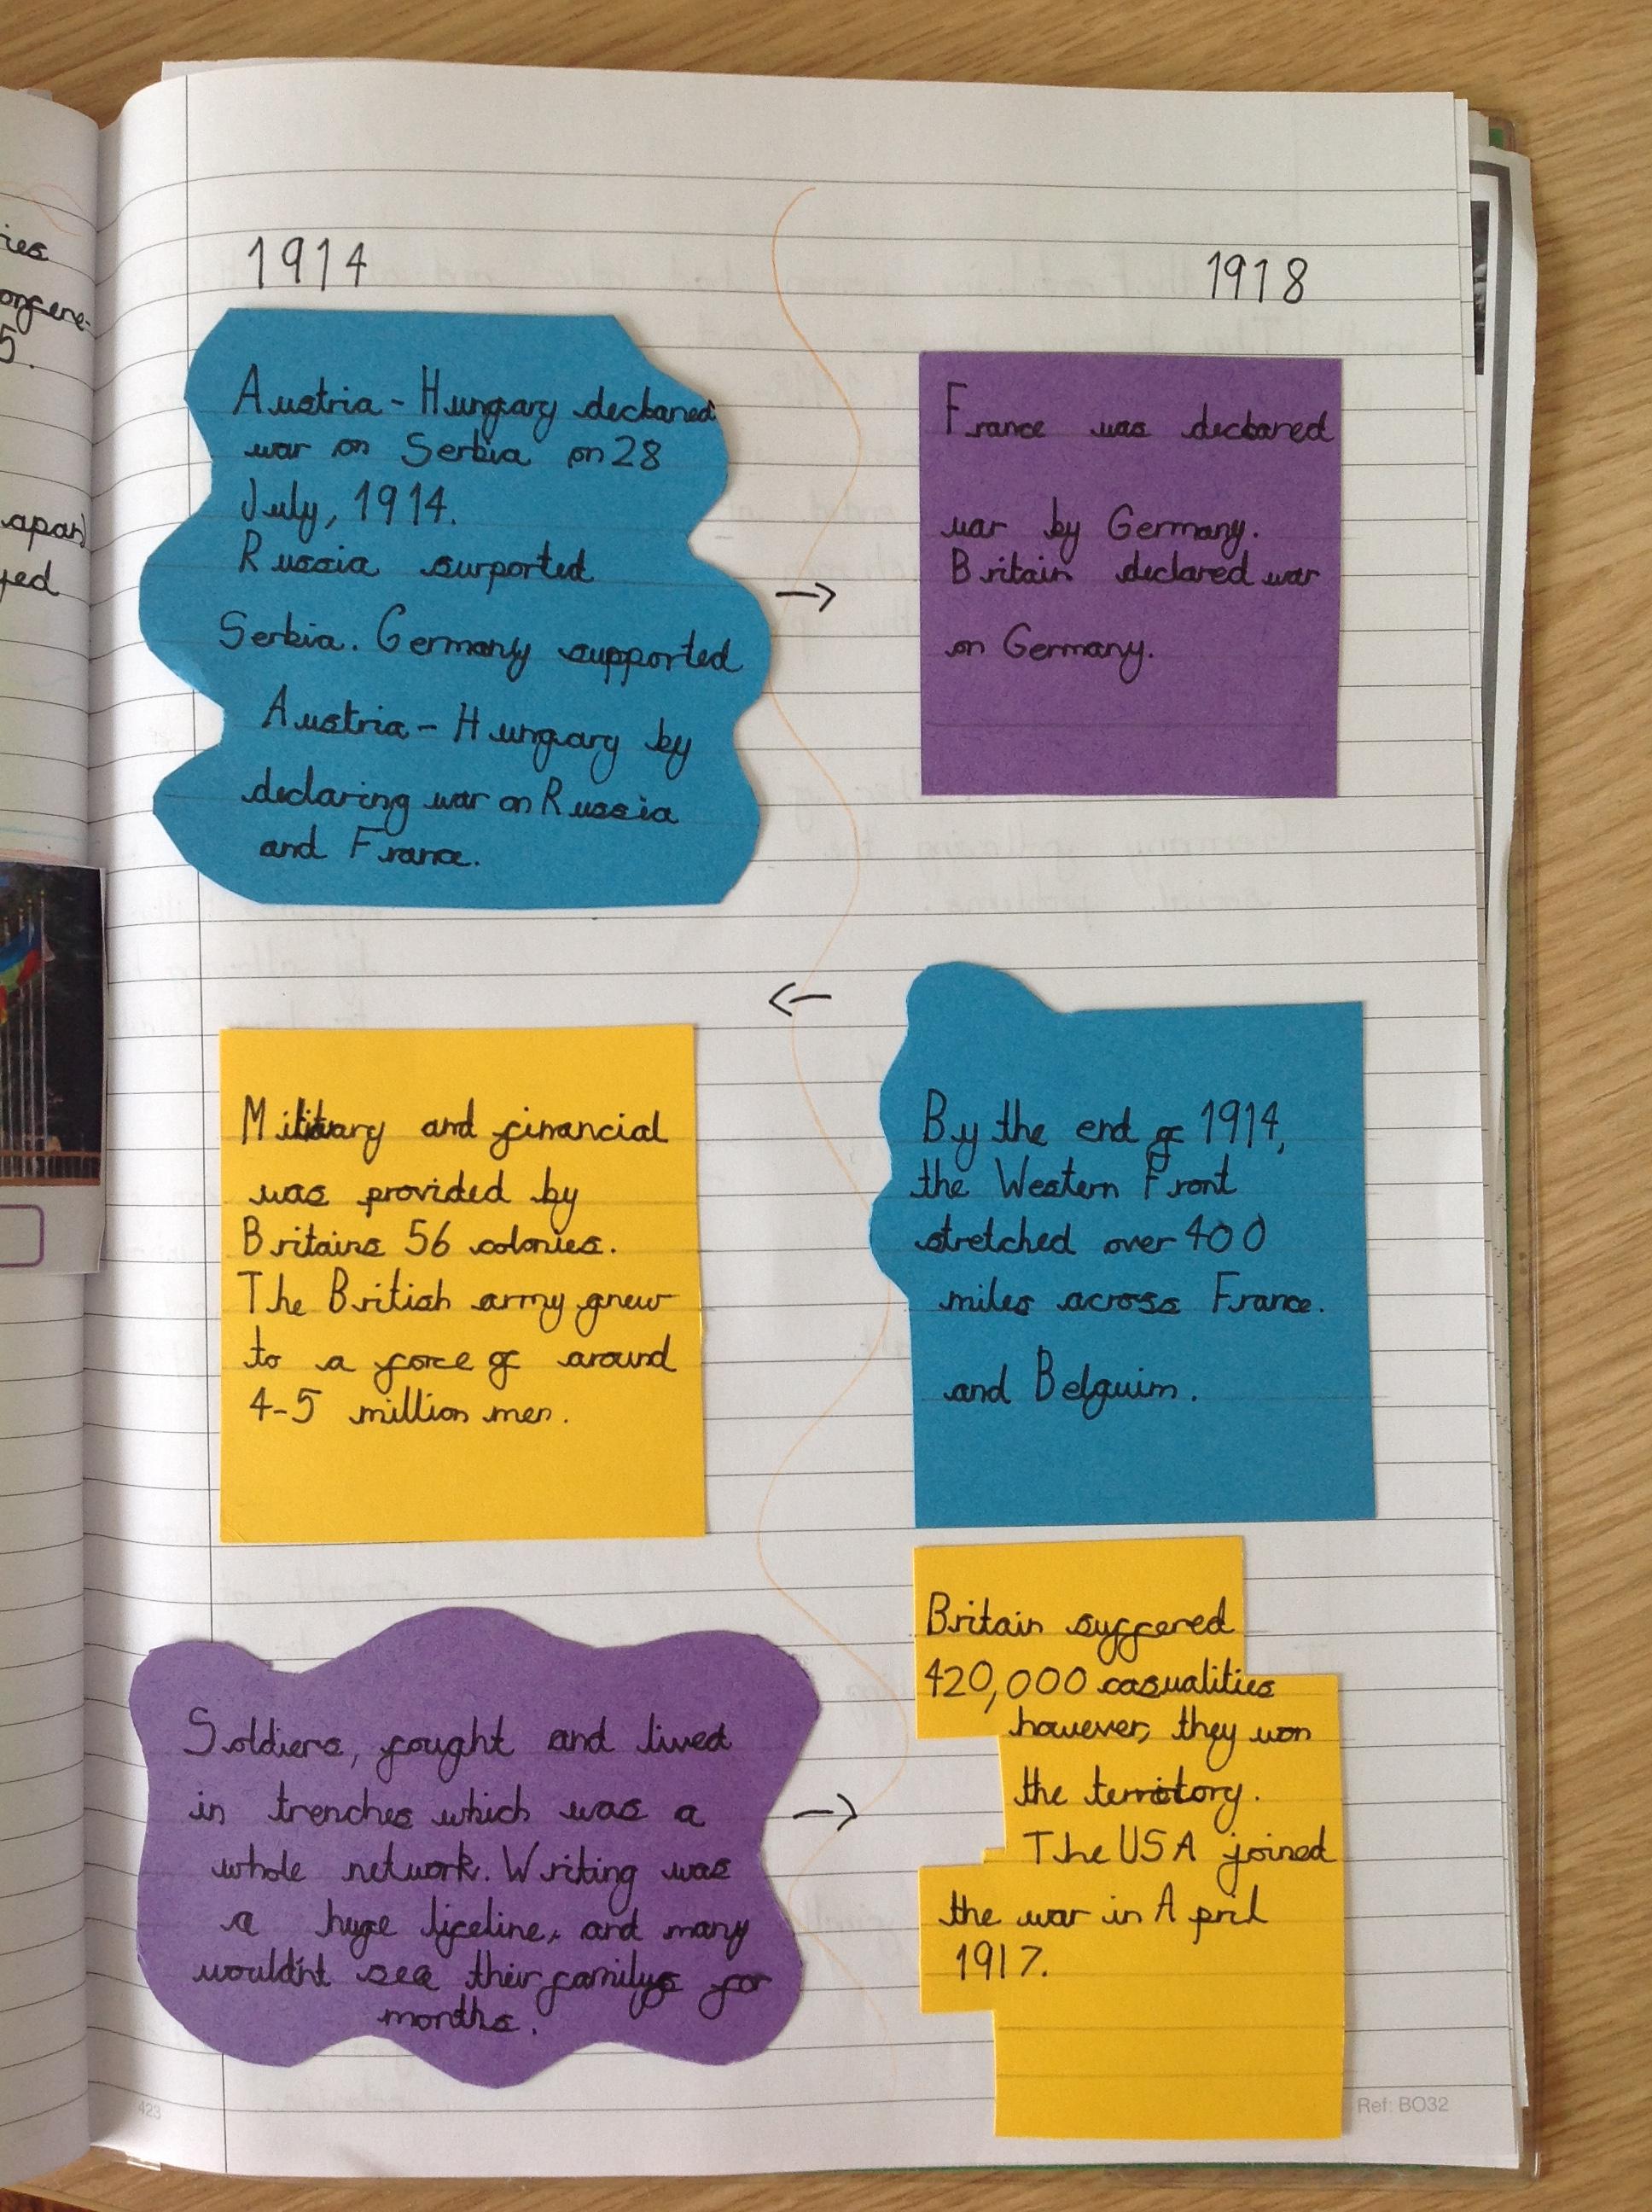 ies
5.
apan)
yed
1914
1918
Austria - Hungary declared
war on Serbia on 28
July, 1914.
Russia surported
Serbia. Germany supported
Austria - Hungary by
declaring war on Russia
and France.
→
France was declared
war by Germany.
Britain declared war
on Germany.
←
By the end of 1914,
the Western Front
stretched over 400
miles across France.
and Belguim.
Military and financial
was provided by
Britains 56 colonies.
The British army grew
to a force of around
4-5 million men.
Soldiers, fought and lived
in trenches which was a
whole network. Writing was
a huge lifeline, and many
wouldn't see their familys for
months.
→
Britain suffered
420,000 casualities
however, they won
the territory.
The USA joined
the war in April
1917.
423
Ref: BO32